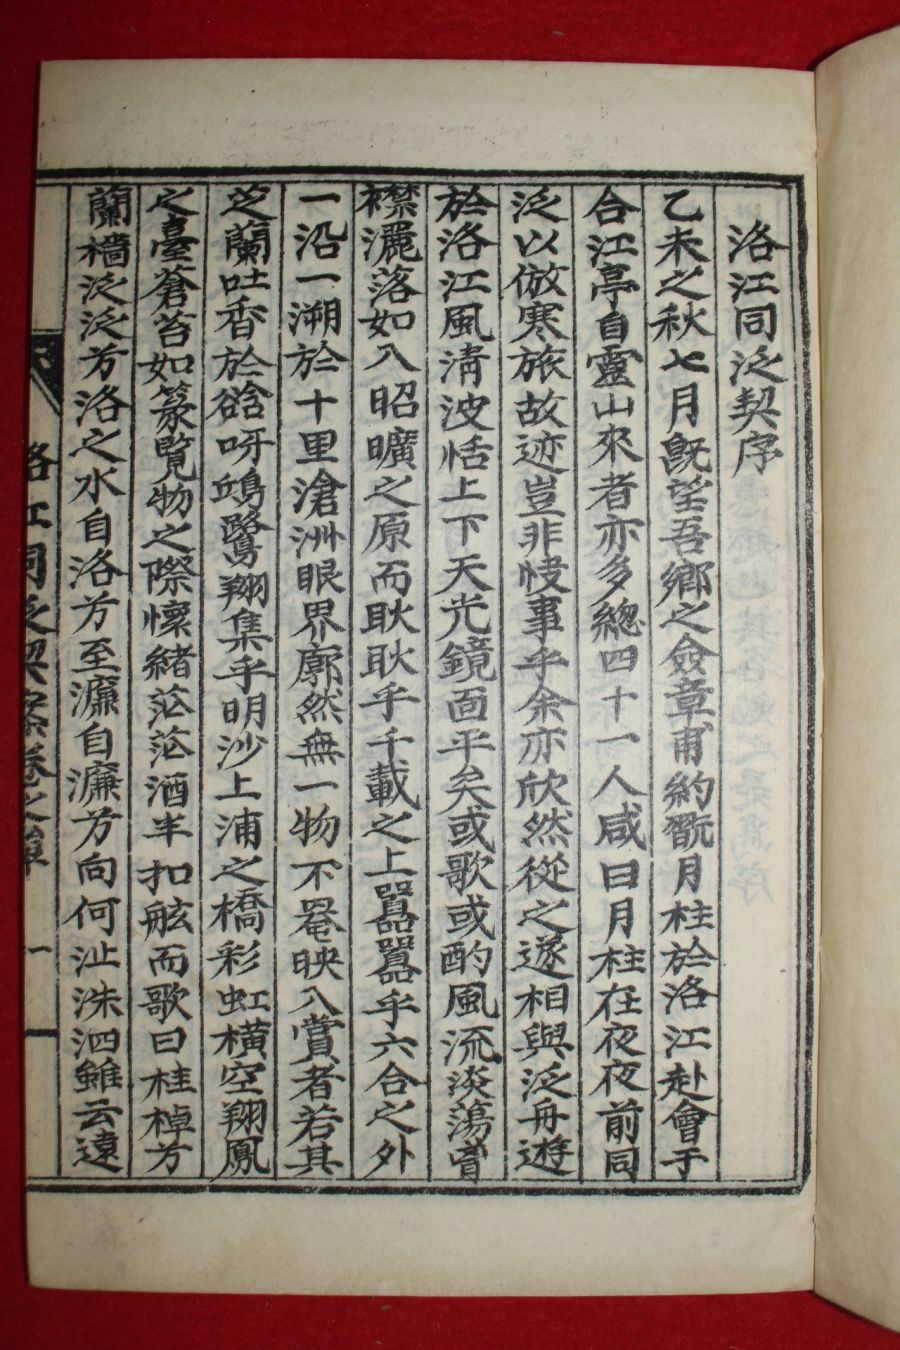 洛江同泛契序
乙未之秋七月旣望吾鄉之僉章甫約翫月柱於洛江赴會于
合江亭自靈山來者亦多總四十一人咸曰月柱在夜夜前同
泛以倣寒旅故迹豈非快事乎余亦欣然從之遂相與泛舟遊
於洛江風淸波恬上下天光鏡面平矣或歌或酌風流淡蕩胷
襟灑落如入昭曠之原而耿耿乎千載之上囂囂乎六合之外
一沿一溯於十里滄洲眼界廓然無一物不罨映入賞者若其
芝蘭吐香於谽呀鴻鷺翔集乎明沙上浦之橋彩虹橫空翔鳳
之臺蒼苔如篆覽物之際懷緖茫茫酒半扣舷而歌曰桂棹方
蘭檣泛泛方洛之水自洛方至濂自濂方向何沚洙泗雖云遠
洛江同泛契案卷之單
一